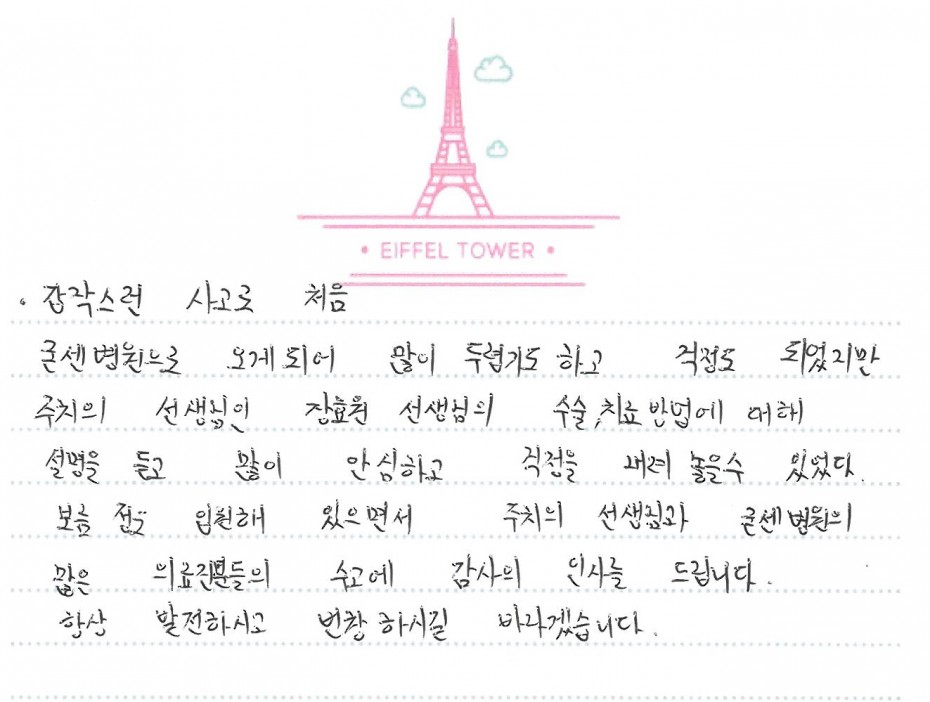 • EIFFEL TOWER •
. 갑작스런 사고로 처음
굳센병원으로 오게되어 많이 두렵기도 하고 걱정도 되었지만
주치의 선생님인 장효원 선생님의 수술,치료방법에 대해
설명을 듣고 많이 안심하고 걱정을 내려 놓을수 있었다.
보름 정도 입원해 있으면서 주치의 선생님과 굳센병원의
많은 의료진분들의 수고에 감사의 인사를 드립니다.
항상 발전하시고 번창하시길 바라겠습니다.